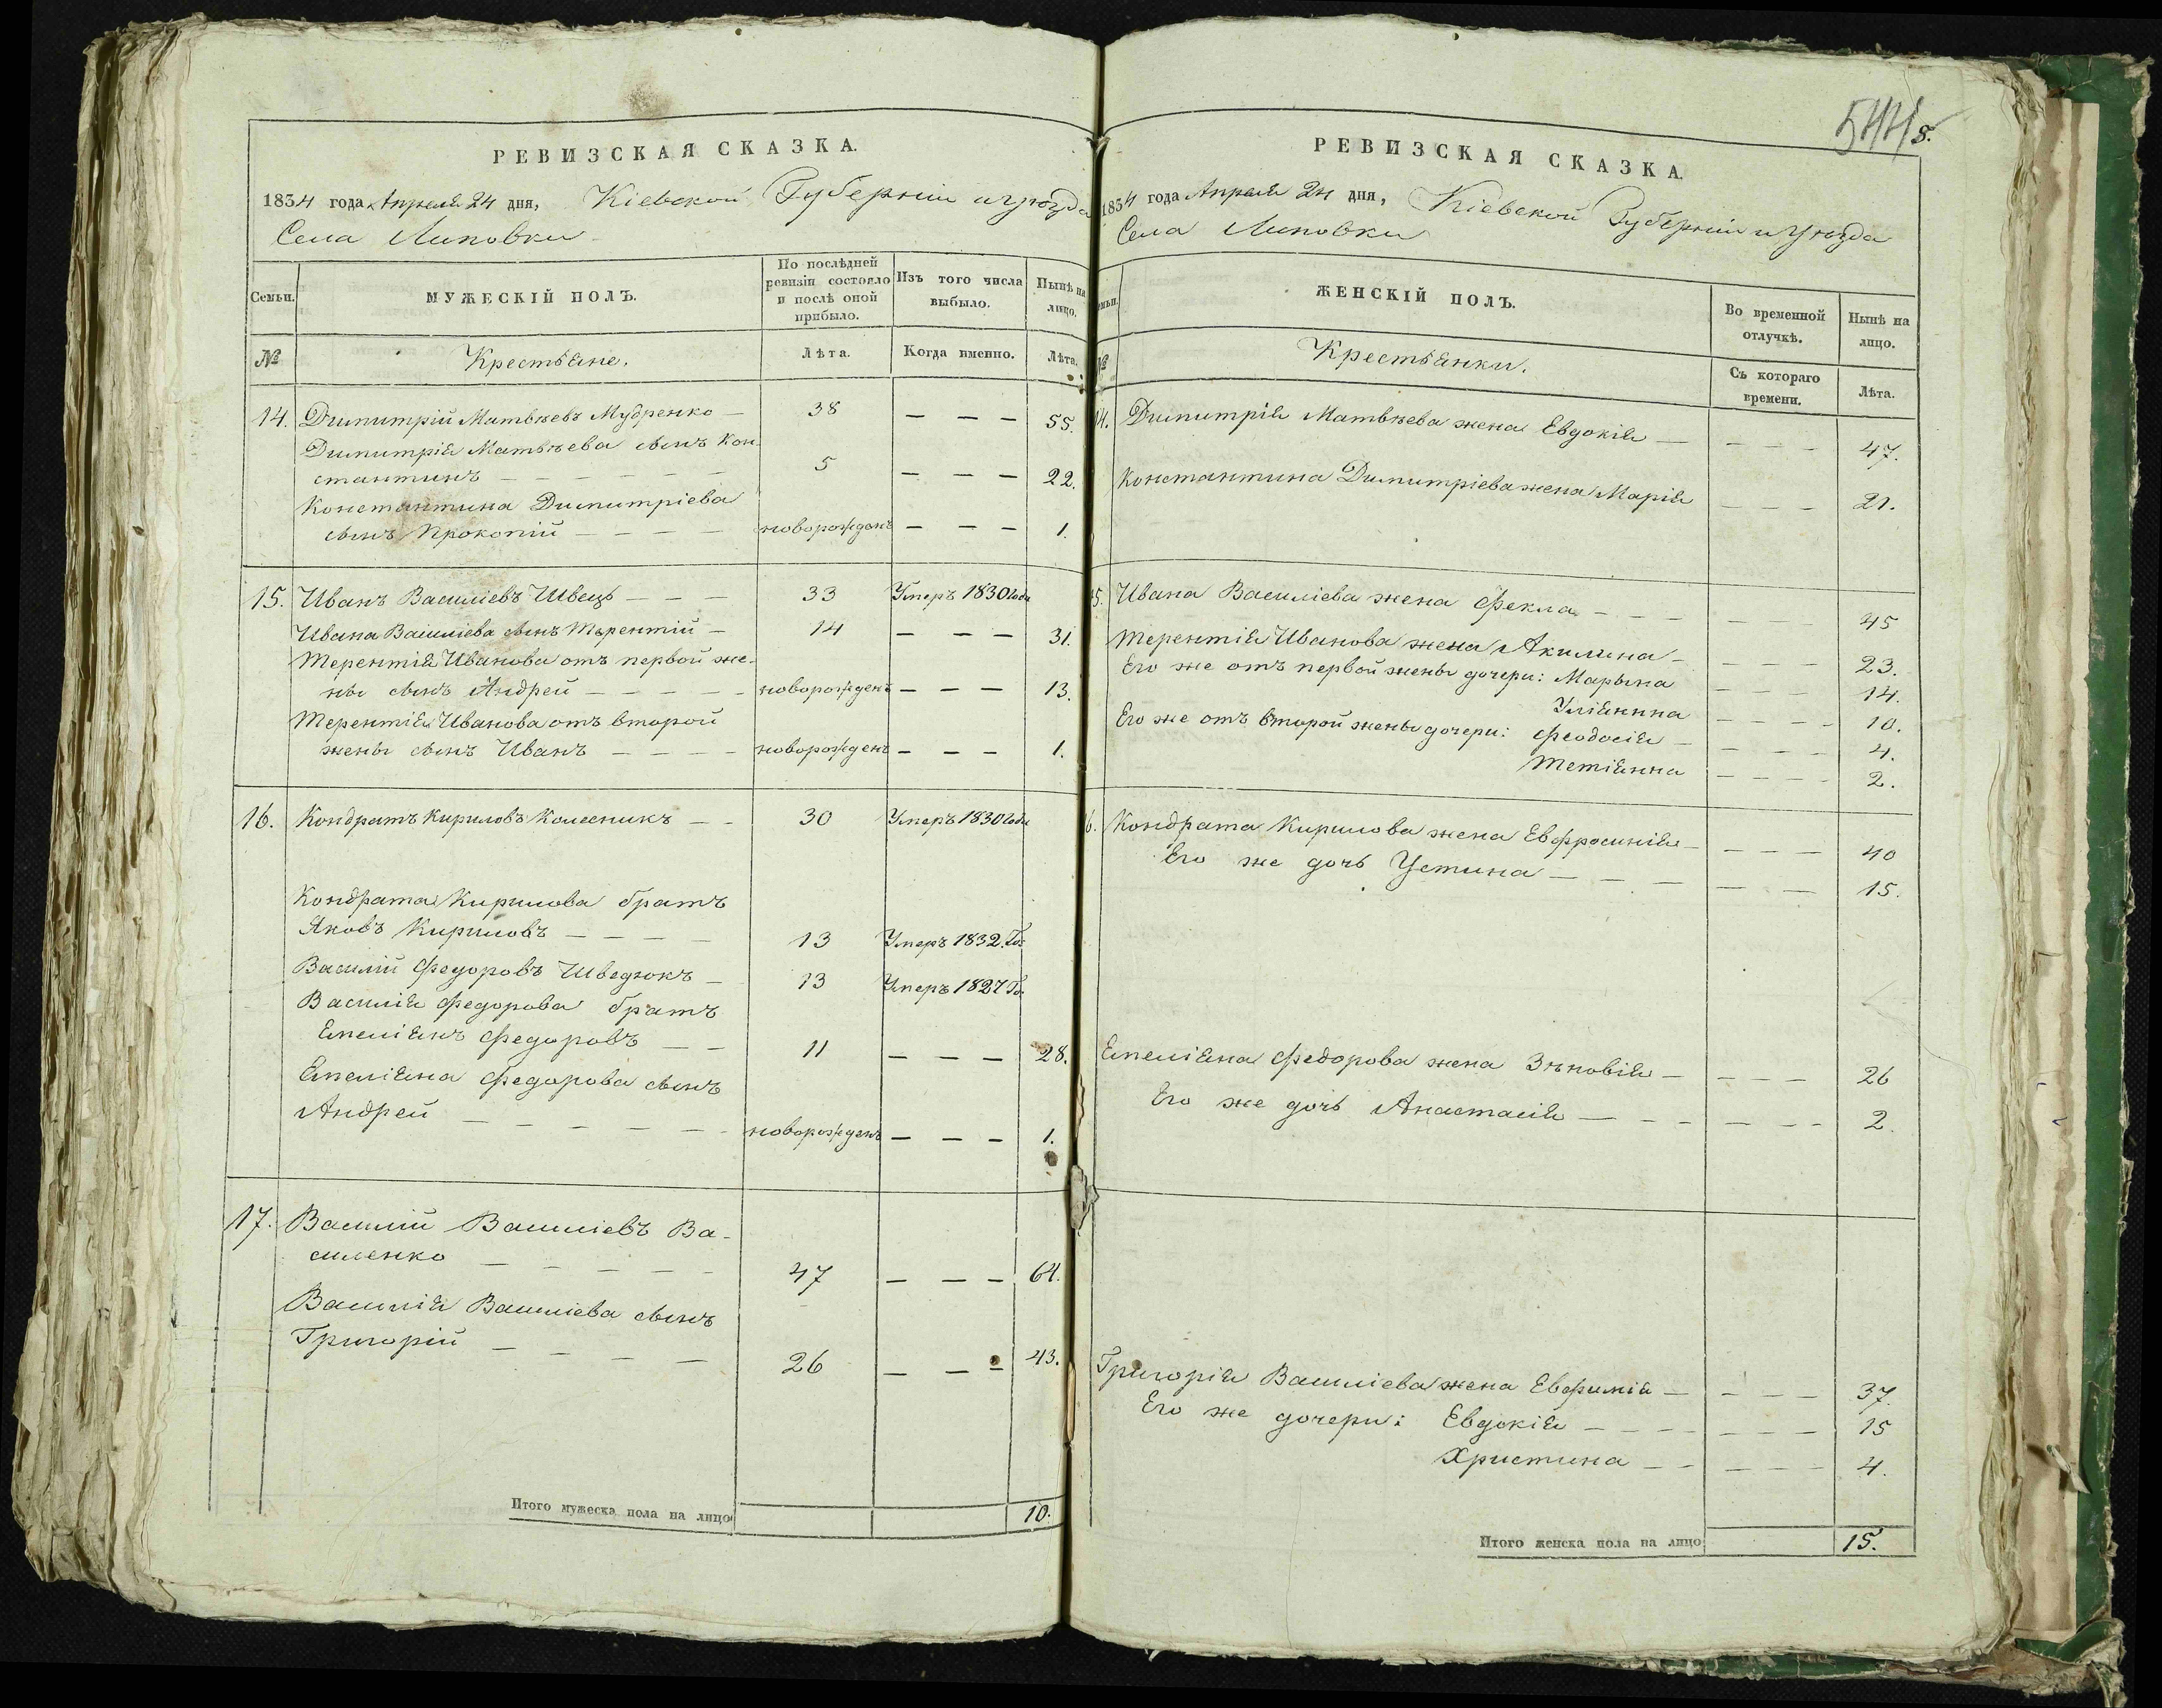 РЕВИЗСКАЯ СКАЗКА.
1834 года Апреля 24 дня, Кіевской Губерніи и уѣзда
Села Липовки
Семьи.
МУЖЕСКІЙ ПОЛЪ.
По послѣдней
ревизіи состояло
и послѣ оной
прибыло.
Изъ того числа
выбыло.
Нынѣ на
лицо.
№
Крестьяне.
Лѣта.
Когда именно.
Лѣта.
14. Димитрій Матвѣевъ Мудренко — 38 — — — 55.
Димитрія Матвѣева сынъ Кон-
стантинъ — — — — 5 — — — 22.
Константина Димитріева
сынъ Прокопій — — — — новорожденъ — — — 1.
15. Иванъ Василіевъ Швецъ — — — 33 Умеръ 1830 года
Ивана Василіева сынъ Терентій — 14 — — — 31.
Терентія Иванова отъ первой же-
ны сынъ Андрей — — — — — новорожденъ — — — 13.
Терентія Иванова отъ второй
жены сынъ Иванъ — — — — новорожденъ — — — 1.
16. Кондратъ Кириловъ Колесникъ — — 30 Умеръ 1830 года
Кондрата Кирилова братъ
Яковъ Кириловъ — — — — 13 Умеръ 1832. Го:
Василій Федоровъ Шведюкъ — 13 Умеръ 1827 Го:
Василія Федорова братъ
Емеліянъ Федоровъ — — 11 — — — 28.
Емеліяна Федорова сынъ
Андрей — — — — — — новорожденъ — — — 1.
17. Василій Василіевъ Ва-
силенко — — — — — 47 — — — 64.
Василія Василіева сынъ
Григорій — — — — 26 — — — 43.
Итого мужеска пола на лицо 10.
544
8.
РЕВИЗСКАЯ СКАЗКА.
1834 года Апреля 24 дня, Кіевской Губерніи и Уѣзда
Села Липовки
емьи.
ЖЕНСКІЙ ПОЛЪ.
Во временной
отлучкѣ.
Нынѣ на
лицо.
№
Крестьянки.
Съ котораго
времени.
Лѣта.
14. Димитрія Матвѣева жена Евдокія — — — — 47.
Константина Димитріева жена Марія — — — 21.
5. Ивана Василіева жена Фекла — — — — — — 45
Терентія Иванова жена Акилина — — — — 23.
Его же отъ первой жены дочери: Марына — — — 14.
Уліянна — — — — 10.
Его же отъ второй жены дочери: Феодосія — — — — 4.
Тетіянна — — — — 2.
6. Кондрата Кирилова жена Евфросинія — — — — 40
Его же дочь Устина — — — — — 15.
Емеліяна Федорова жена Зѣновія — — — — 26
Его же дочь Анастасія — — — — — — — 2.
Григорія Василіева жена Евфимія — — — — 37.
Его же дочери: Евдокія — — — — — — — 15
Христина — — — — — 4.
Итого женска пола на лицо 15.